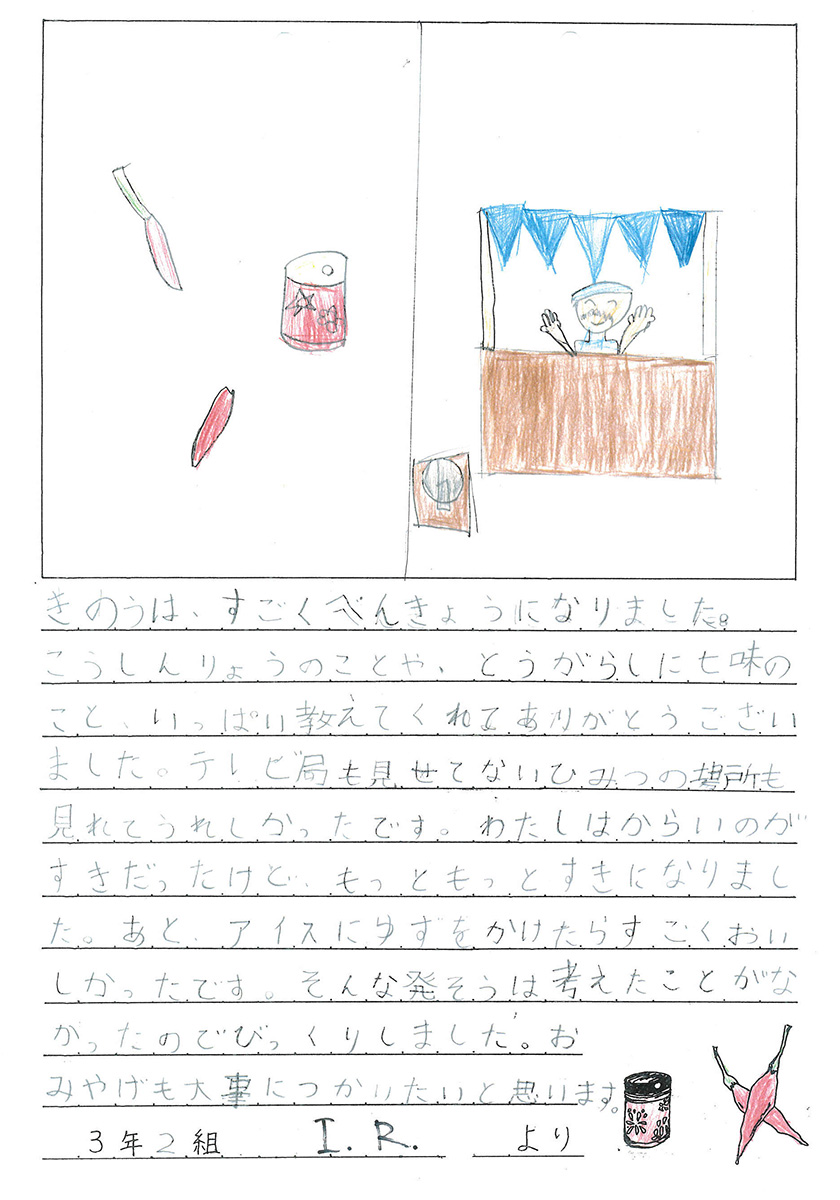 きのうは、すごくべんきょうになりました。
こうしんりょうのことや、とうがらしに七味の
こと、いっぱい教えてくれてありがとうござい
ました。テレビ局も見せてないひみつの場所も
見れてうれしかったです。わたしはからいのが
すきだったけど、もっともっとすきになりまし
た。あと、アイスにゆずをかけたらすごくおい
しかったです。そんな発そうは考えたことがな
かったのでびっくりしました。お
みやげも大事につかいたいと思います。
3年2組 I.R. より